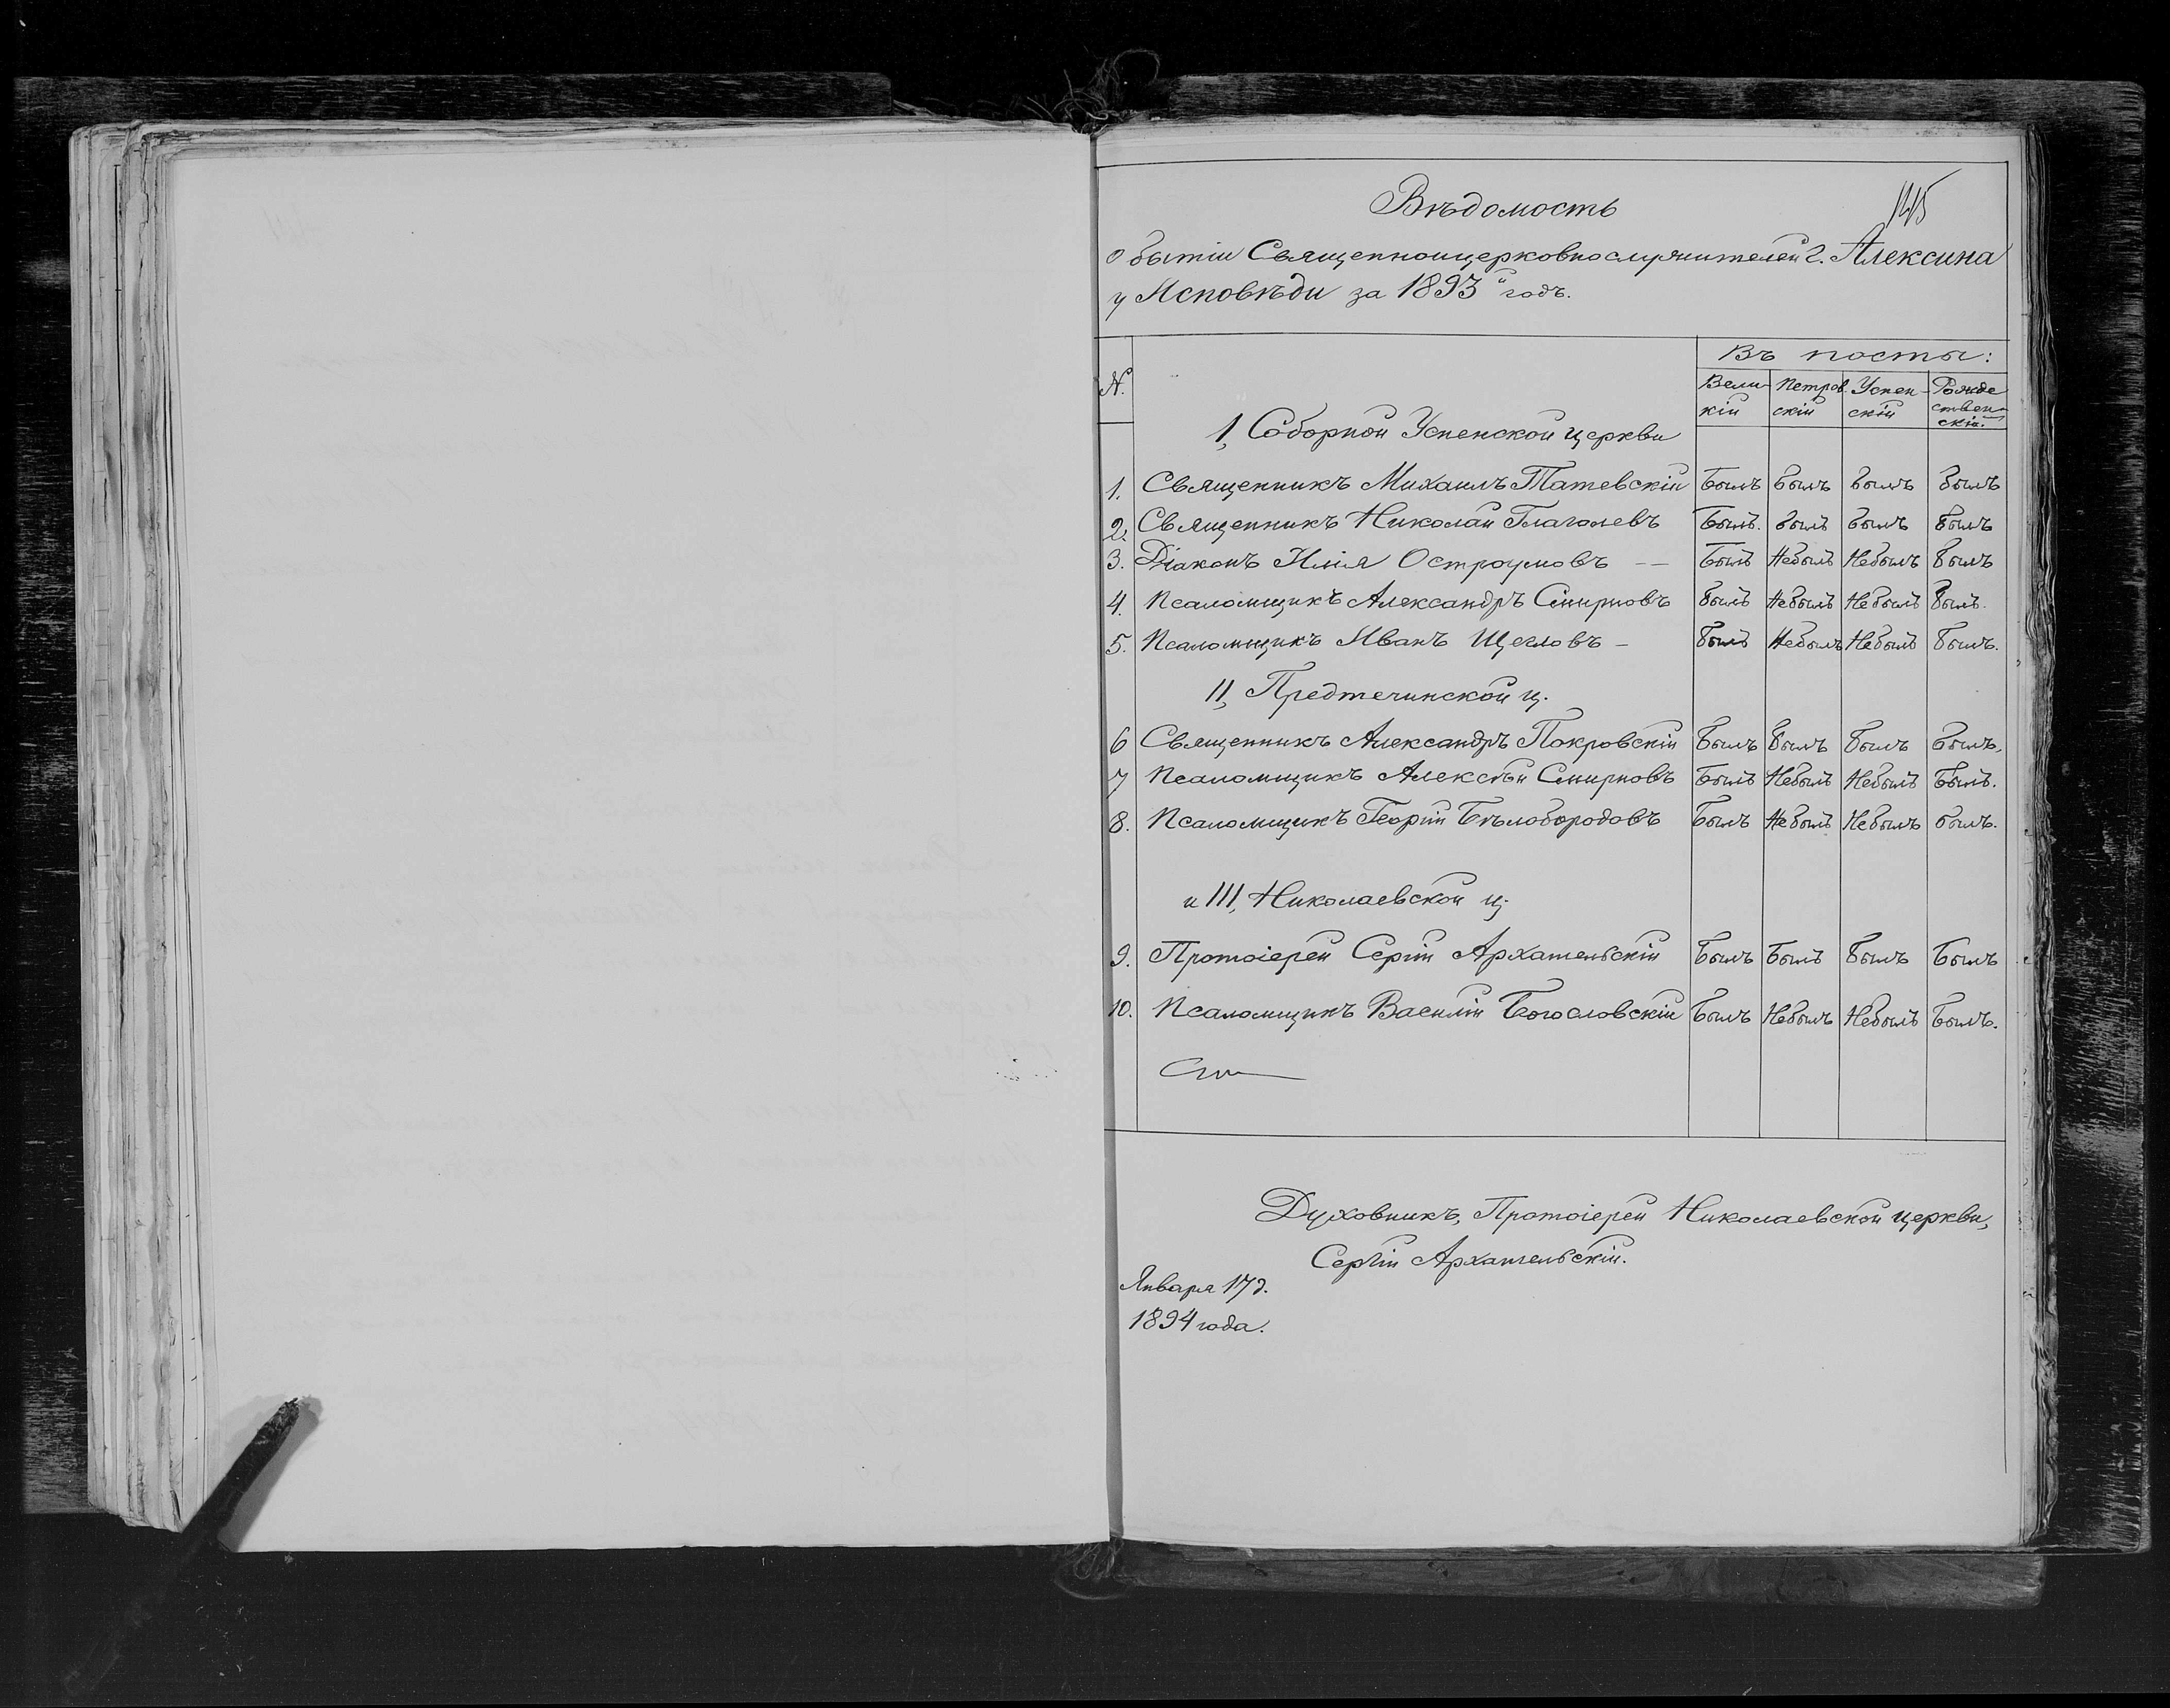 145
Вѣдомость
о бытіи Священноицерковнослужителей г. Алексина
у Исповѣди за 1893й годъ.
N.
Въ посты:
Вели- Петров Успен- Рожде
кій скій скій ствен-
скій.
1, Соборной Успенской церкви
1. Священникъ Михаилъ Татевскій Былъ былъ былъ былъ
2. Священникъ Николай Глаголевъ Былъ. былъ былъ былъ
3. Діаконъ Илія Остроумовъ — — Былъ Небылъ Небылъ былъ
4. Псаломщикъ Александръ Смирновъ былъ Небылъ Небылъ былъ.
5. Псаломщикъ Иванъ Щегловъ — былъ Небылъ Небылъ былъ.
II, Предтечинской ц.
6 Священникъ Александръ Покровскій былъ былъ былъ былъ.
7 Псаломщикъ Алексѣй Смирновъ Былъ Небылъ Небылъ Былъ.
8. Псаломщикъ Георгій Бѣлобородовъ Былъ Небылъ Небылъ былъ.
и III, Николаевской ц.
9. Протоіерей Сергій Архангельскій Былъ Былъ былъ Былъ
10. Псаломщикъ Василій Богословскій Былъ Небылъ Небылъ Былъ.
Духовникъ, Протоіерей Николаевской церкви,
Сергій Архангельскій.
Января 17 д.
1894 года.